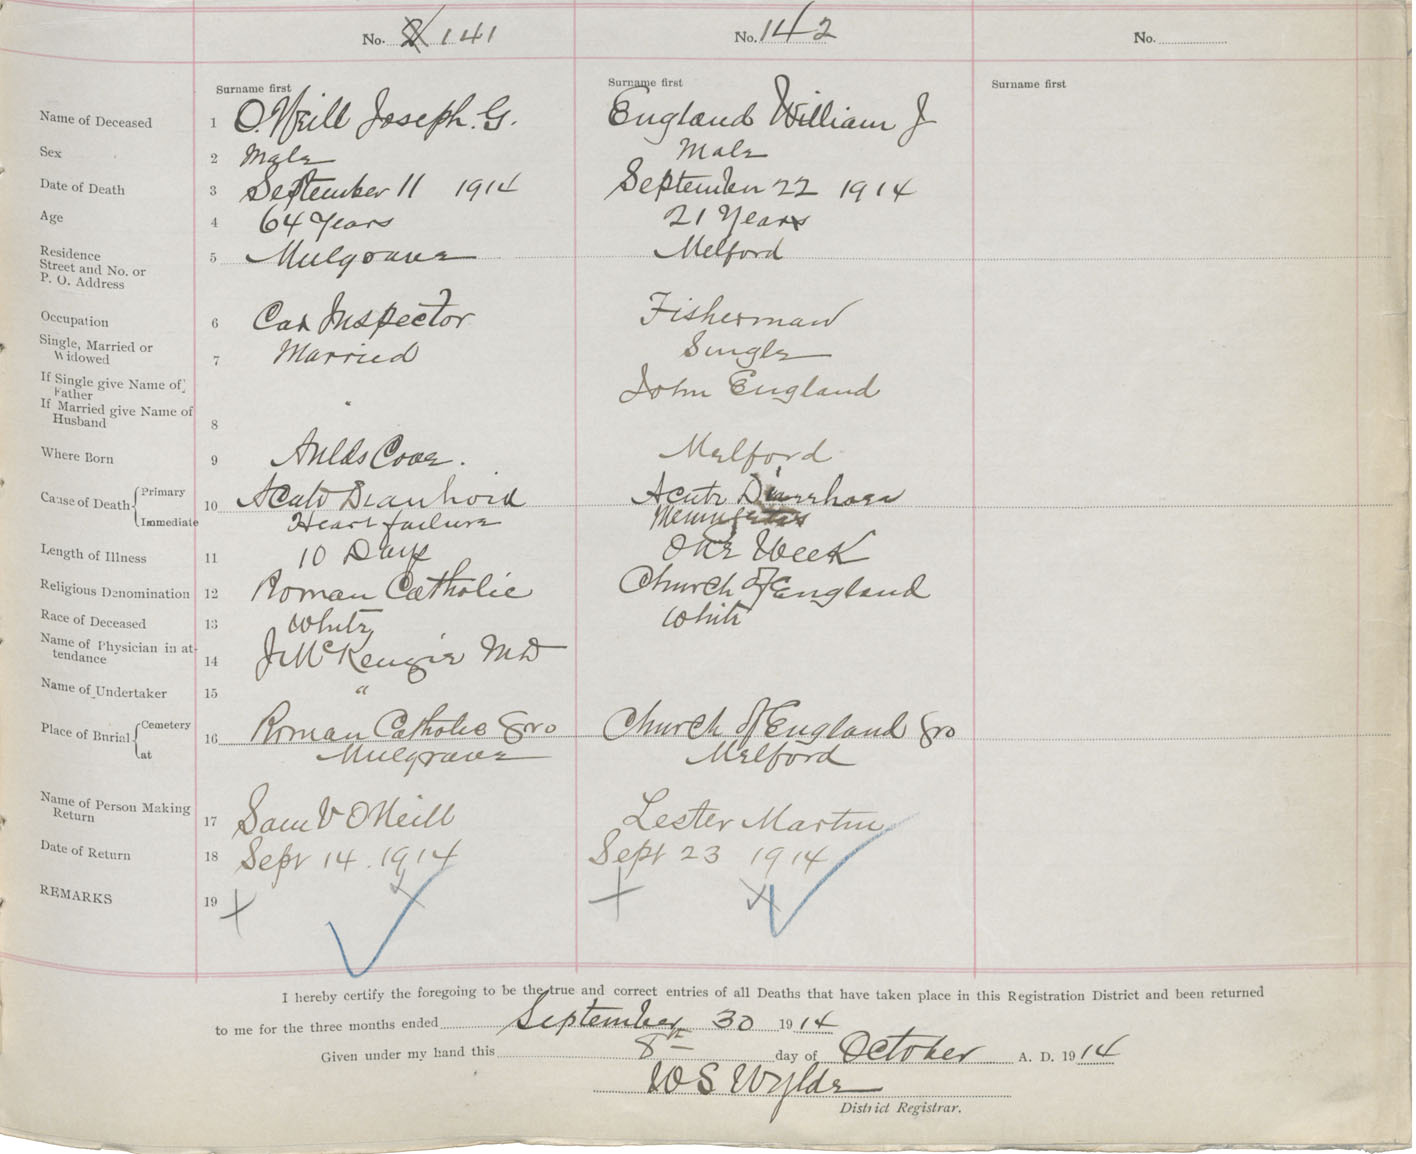 No. 141 No. 142 No.
Surname first Surname first Surname first
Name of Deceased 1 O.Neill Joseph. G. England William J
Sex 2 Male Male
Date of Death 3 September 11 1914 September 22 1914
Age 4 64 Years 21 Years
Residence
Street and No. or
P. O. Address 5 Mulgrave Melford
Occupation 6 Car Inspector Fisherman
Single, Married or
Widowed 7 Married Single
If Single give Name of
Father John England
If Married give Name of
Husband 8 "
Where Born 9 Aulds Cove. Melford
Cause of Death Primary 10 Acute Acute Diarrhoea
Immediate Heart failure
Length of Illness 11 10 Days One Week
Religious Denomination 12 Roman Catholic Church of England
Race of Deceased 13 White White
Name of Physician in at-
tendance 14 J McKenzie MD
Name of Undertaker 15 "
Place of Burial Cemetery 16 Roman Catholic Gro Church of England Gro
at Mulgrave Melford
Name of Person Making
Return 17 Sam V O Neill Lester Martin
Date of Return 18 Sept 14. 1914 Sept 23 1914
REMARKS 19
I hereby certify the foregoing to be the true and correct entries of all Deaths that have taken place in this Registration District and been returned
to me for the three months ended September 30 1914
Given under my hand this 8th day of October A. D. 1914
W S Wylde
District Registrar.